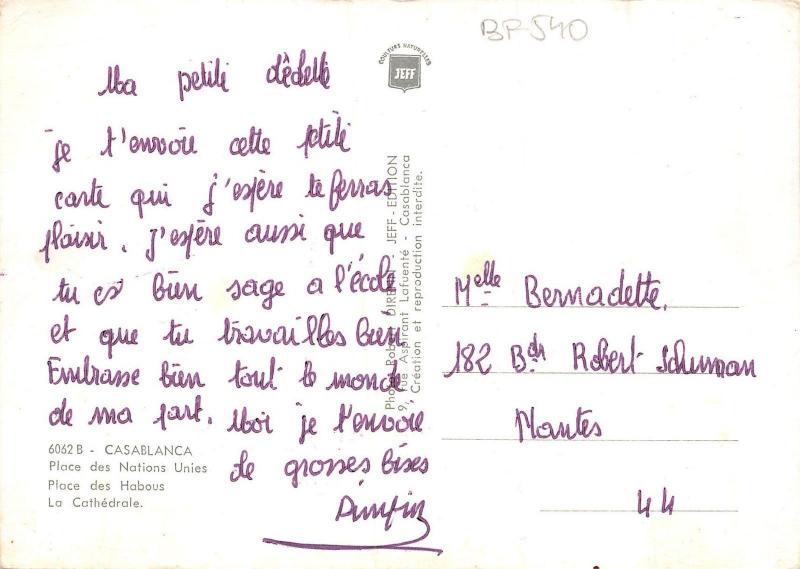 BP-540
COULEURS NATURELLES
JEFF
Ma petite dédette
je t'envoie cette petite
carte qui j'espère te ferras
plaisir. J'espère aussi que
tu es bien sage a l'école
et que tu travailles bien
Embrasse bien tout le monde
de ma part. Moi je t'envoie
de grosses bises
6062 B - CASABLANCA
Place des Nations Unies
Place des Habous
La Cathédrale.
JEFF - EDITION
9, rue Aspirant Lafuenté - Casablanca
Création et reproduction interdite.
Melle Bernadette.
182 Bdr Robert Schuman
Nantes
44